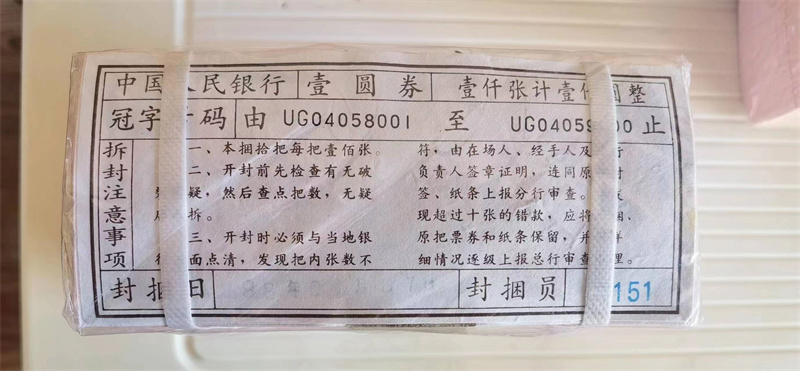 中国人民银行 壹圆券 壹仟张计壹仟圆整
冠字号码 由 UG04058001 至 UG04059000 止
拆封注意事项
一、本捆拾把每把壹佰张。
二、开封前先检查有无破
疑，然后查点把数，无疑
拆。
三、开封时必须与当地银
面点清，发现把内张数不
符，由在场人、经手人及行
负责人签章证明，连同原封
签、纸条上报分行审查。
现超过十张的错款，应将
原把票券和纸条保留，并
细情况逐级上报总行审查
封捆日 封捆员 151